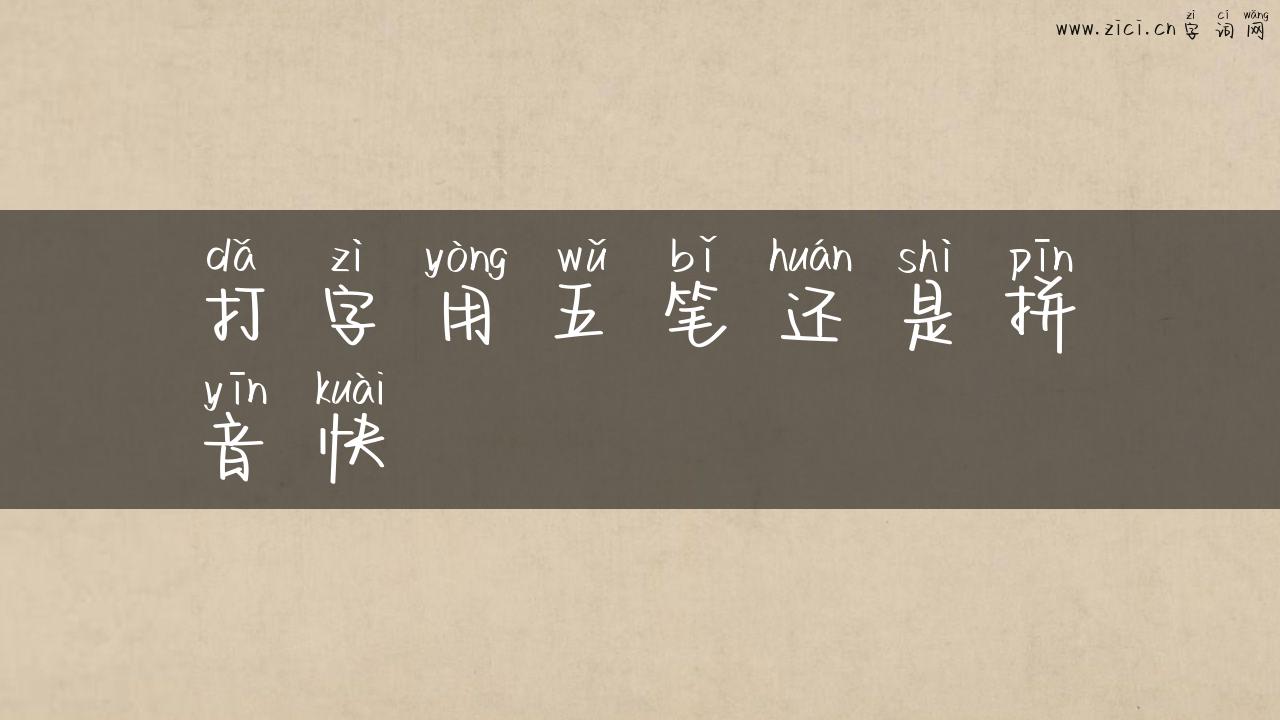 zì cí wǎng
www.zici.cn 字词网
dǎ zì yòng wǔ bǐ huán shì pīn
打字用五笔还是拼
yīn kuài
音快